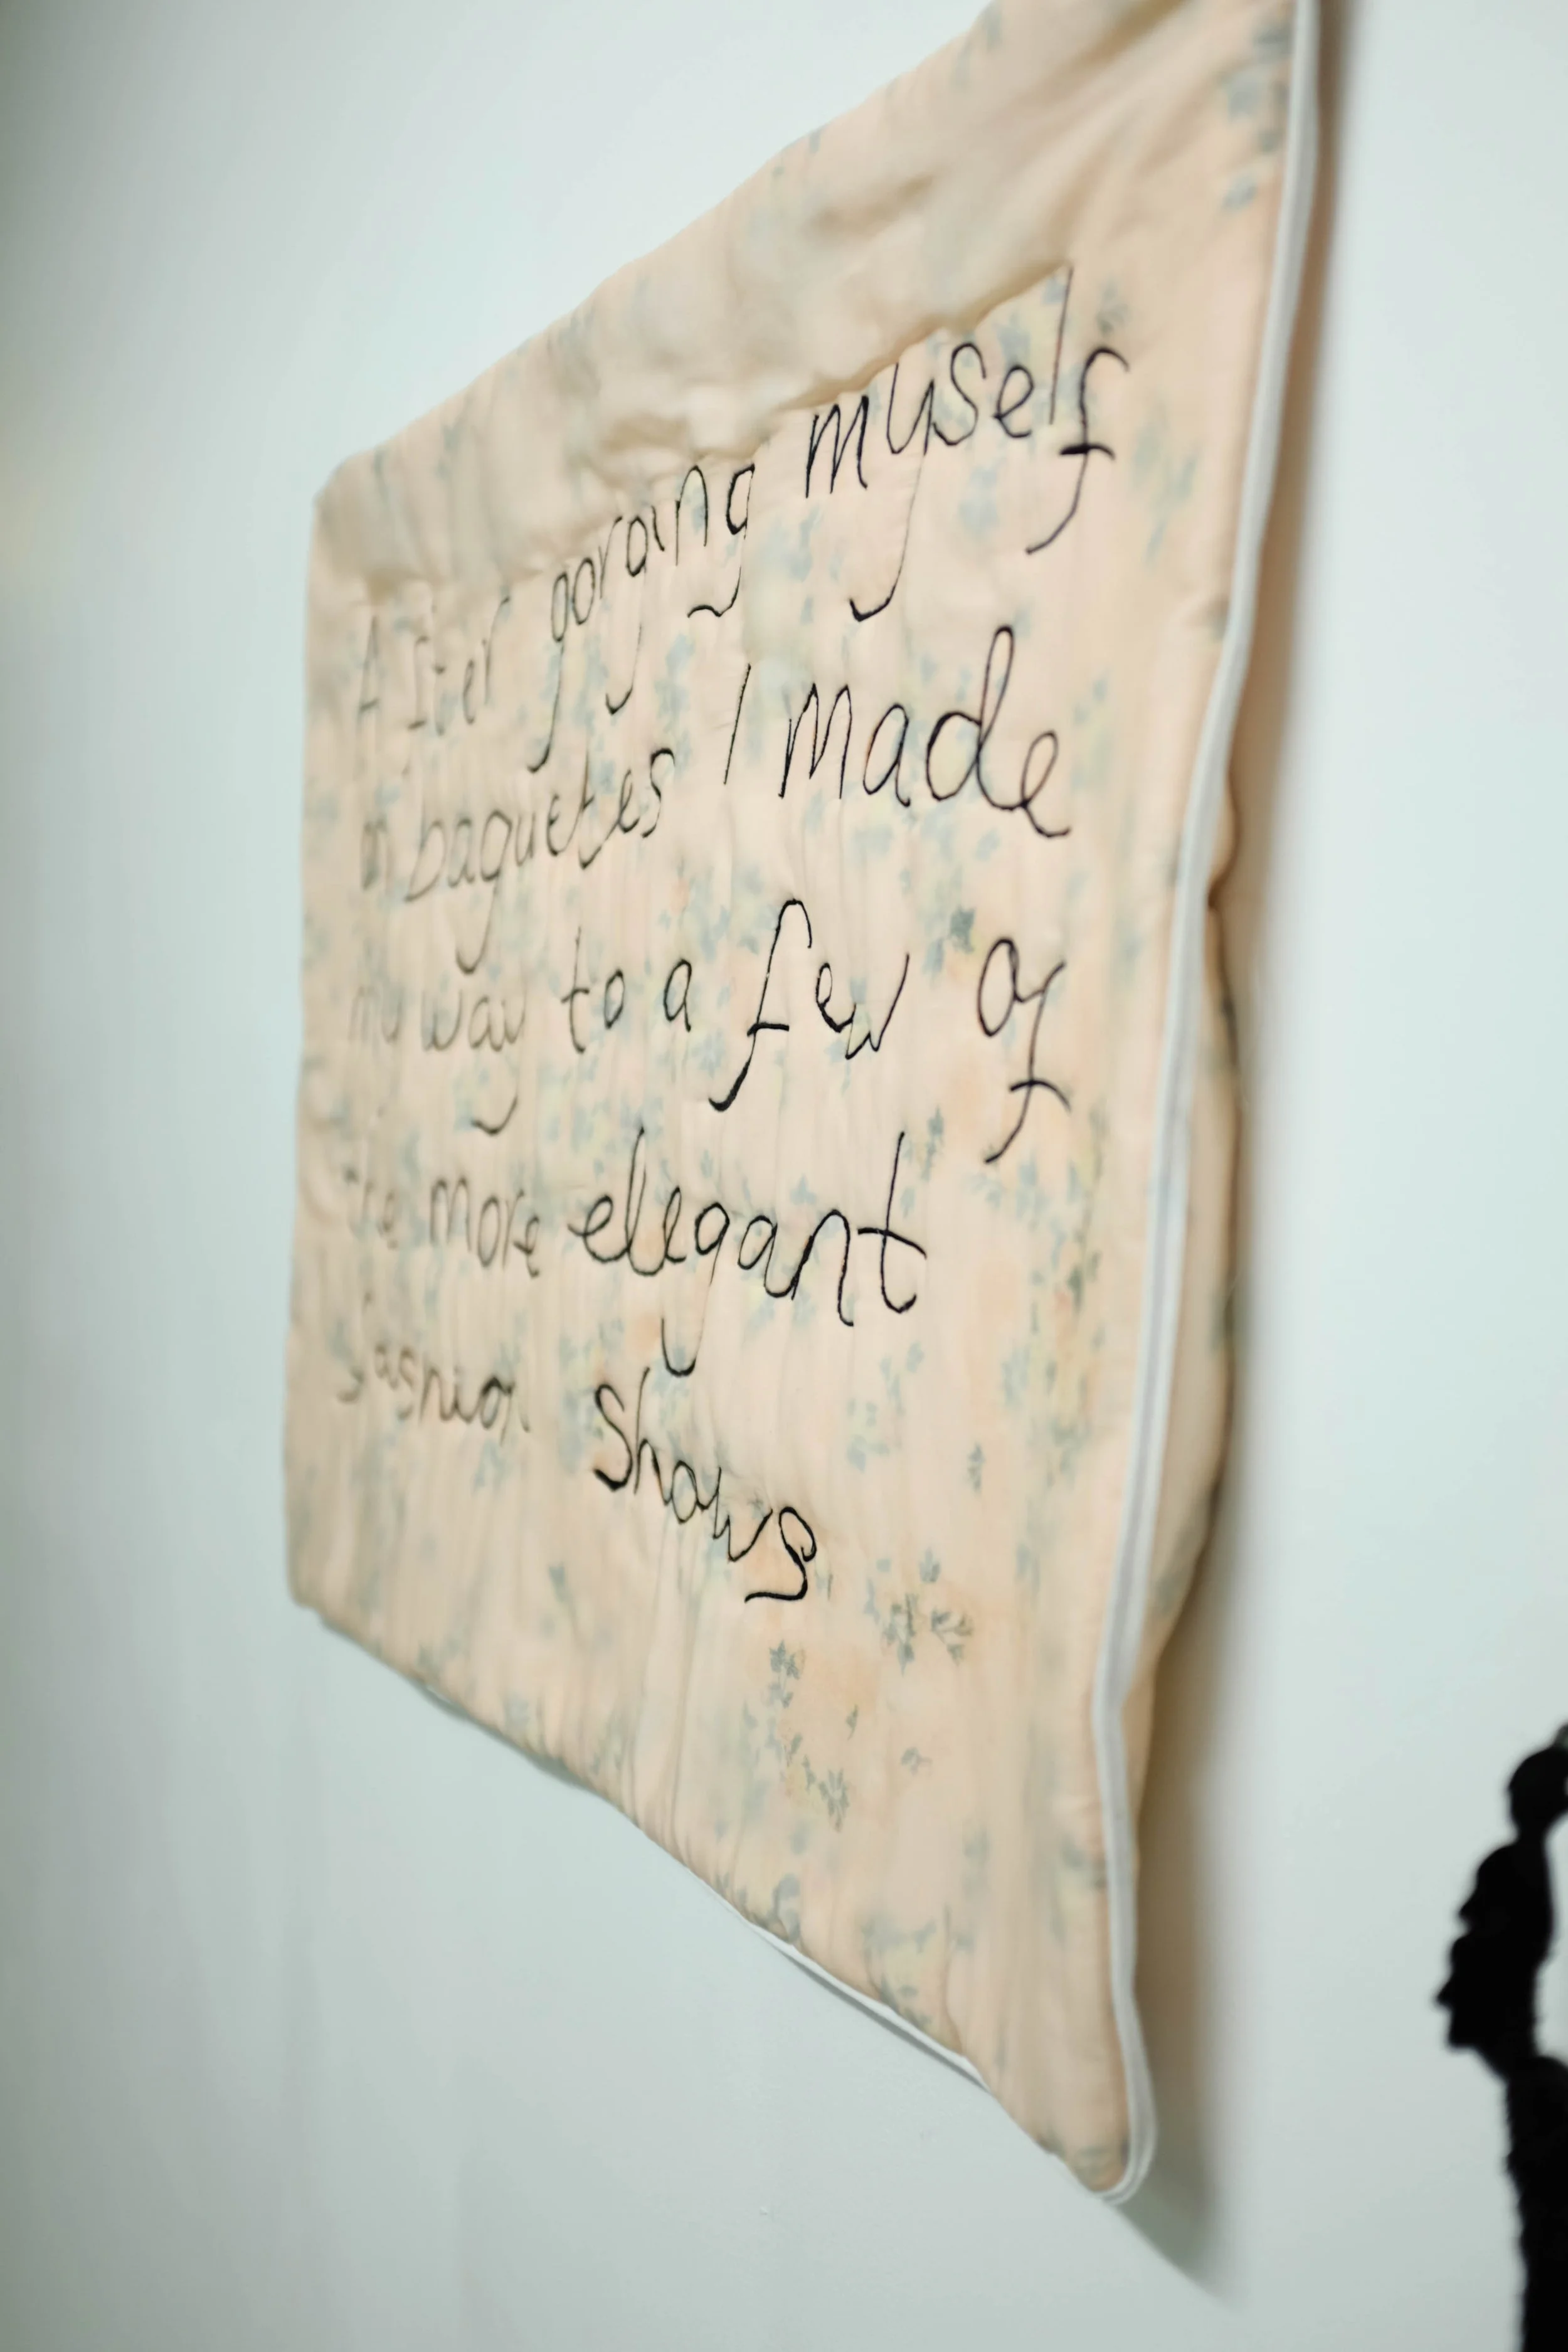 After gorging myself
on baguettes I made
my way to a few of
the more elegant
fashion shows